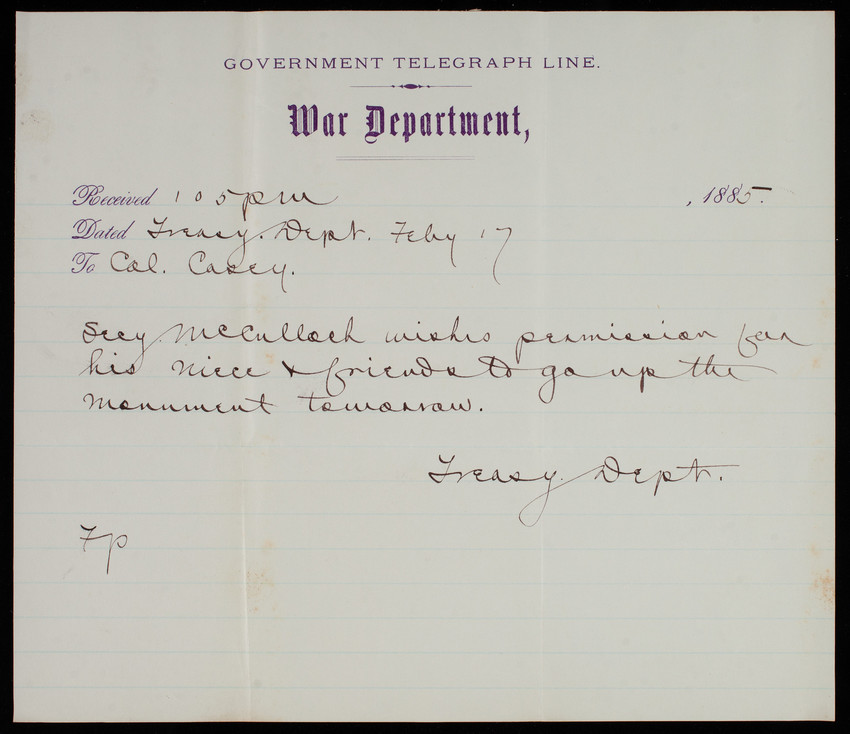 GOVERNMENT TELEGRAPH LINE.
War Department,
Received 1 05 pm , 1885.
Dated Treasy. Dept. Feby 17
To Col. Casey.
Secy. McCulloch wishes permission for
his niece & friends to go up the
monument tomorrow.
Treasy. Dept.
Fp